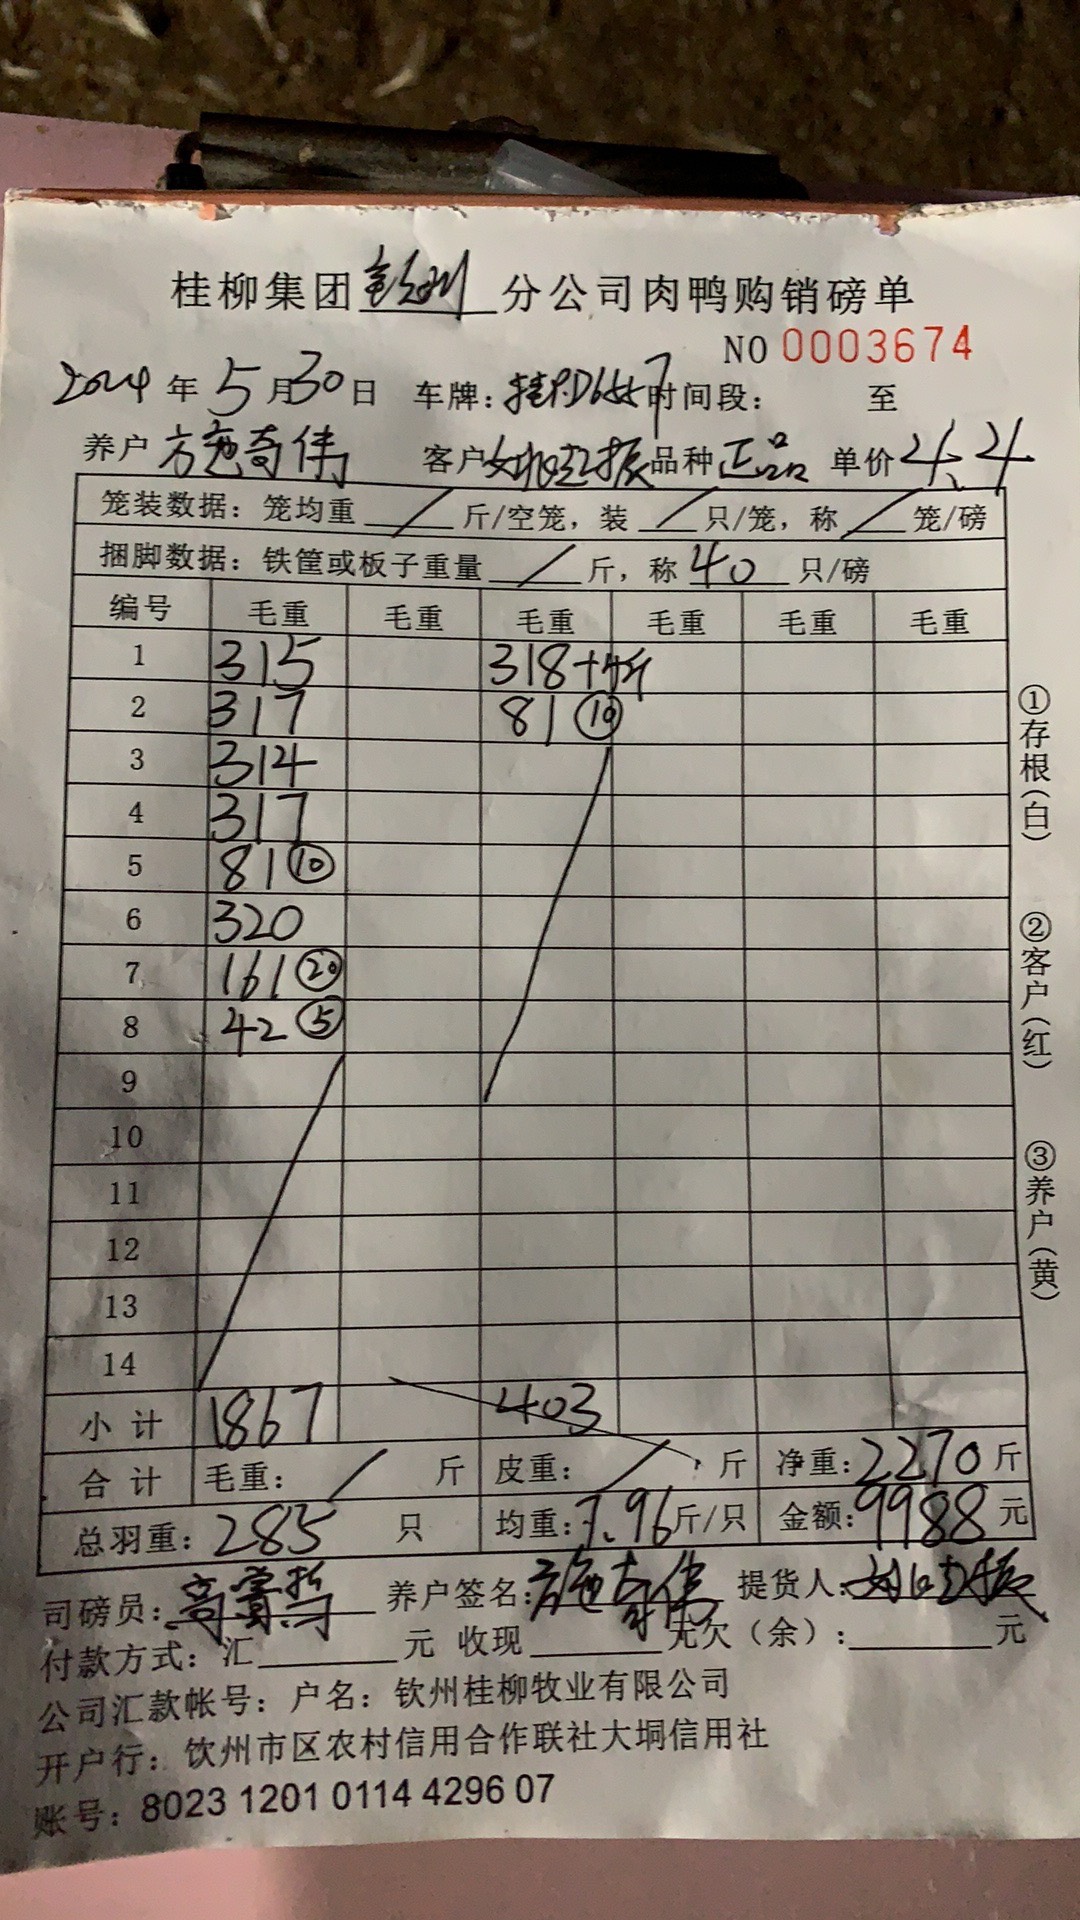 桂柳集团钦州分公司肉鸭购销磅单
NO 0003674
2024年5月30日 车牌: 时间段: 至
养户 施奇伟 客户 品种 正品 单价 4.4
笼装数据: 笼均重 / 斤/空笼, 装 / 只/笼, 称 / 笼/磅
捆脚数据: 铁筐或板子重量 / 斤, 称 40 只/磅
编号 毛重 毛重 毛重 毛重 毛重 毛重
1 315 318+4斤
2 317 81⑩
3 314
4 317
5 81⑩
6 320
7 161⑳
8 42⑤
9
10
11
12
13
14
小计 1867 403
合计 毛重: / 斤 皮重: / 斤 净重: 2270 斤
总羽重: 285 只 均重: 7.96 斤/只 金额: 9988 元
司磅员: 养户签名: 施奇伟 提货人:
付款方式: 汇 元 收现 元 欠(余): 元
公司汇款帐号: 户名: 钦州桂柳牧业有限公司
开户行: 钦州市区农村信用合作联社大垌信用社
账号: 8023 1201 0114 4296 07
①存根(白)
②客户(红)
③养户(黄)